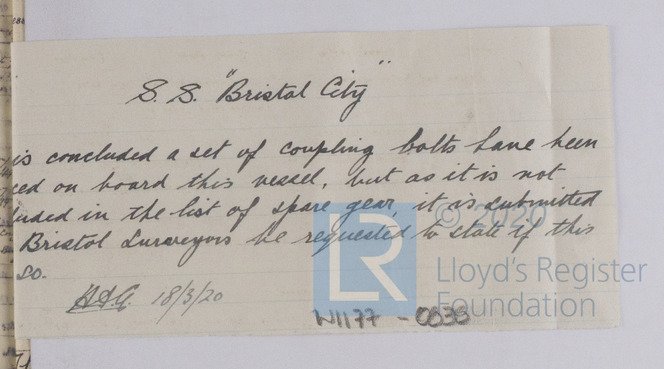 S. S. "Bristol City"
is concluded a set of coupling bolts have been
ced on board this vessel, but as it is not
uded in the list of spare gear, it is submitted
Bristol Surveyors be requested to state if this
so.
18/3/20
© 2020
LR
Lloyd's Register
Foundation
W1177 - 0838